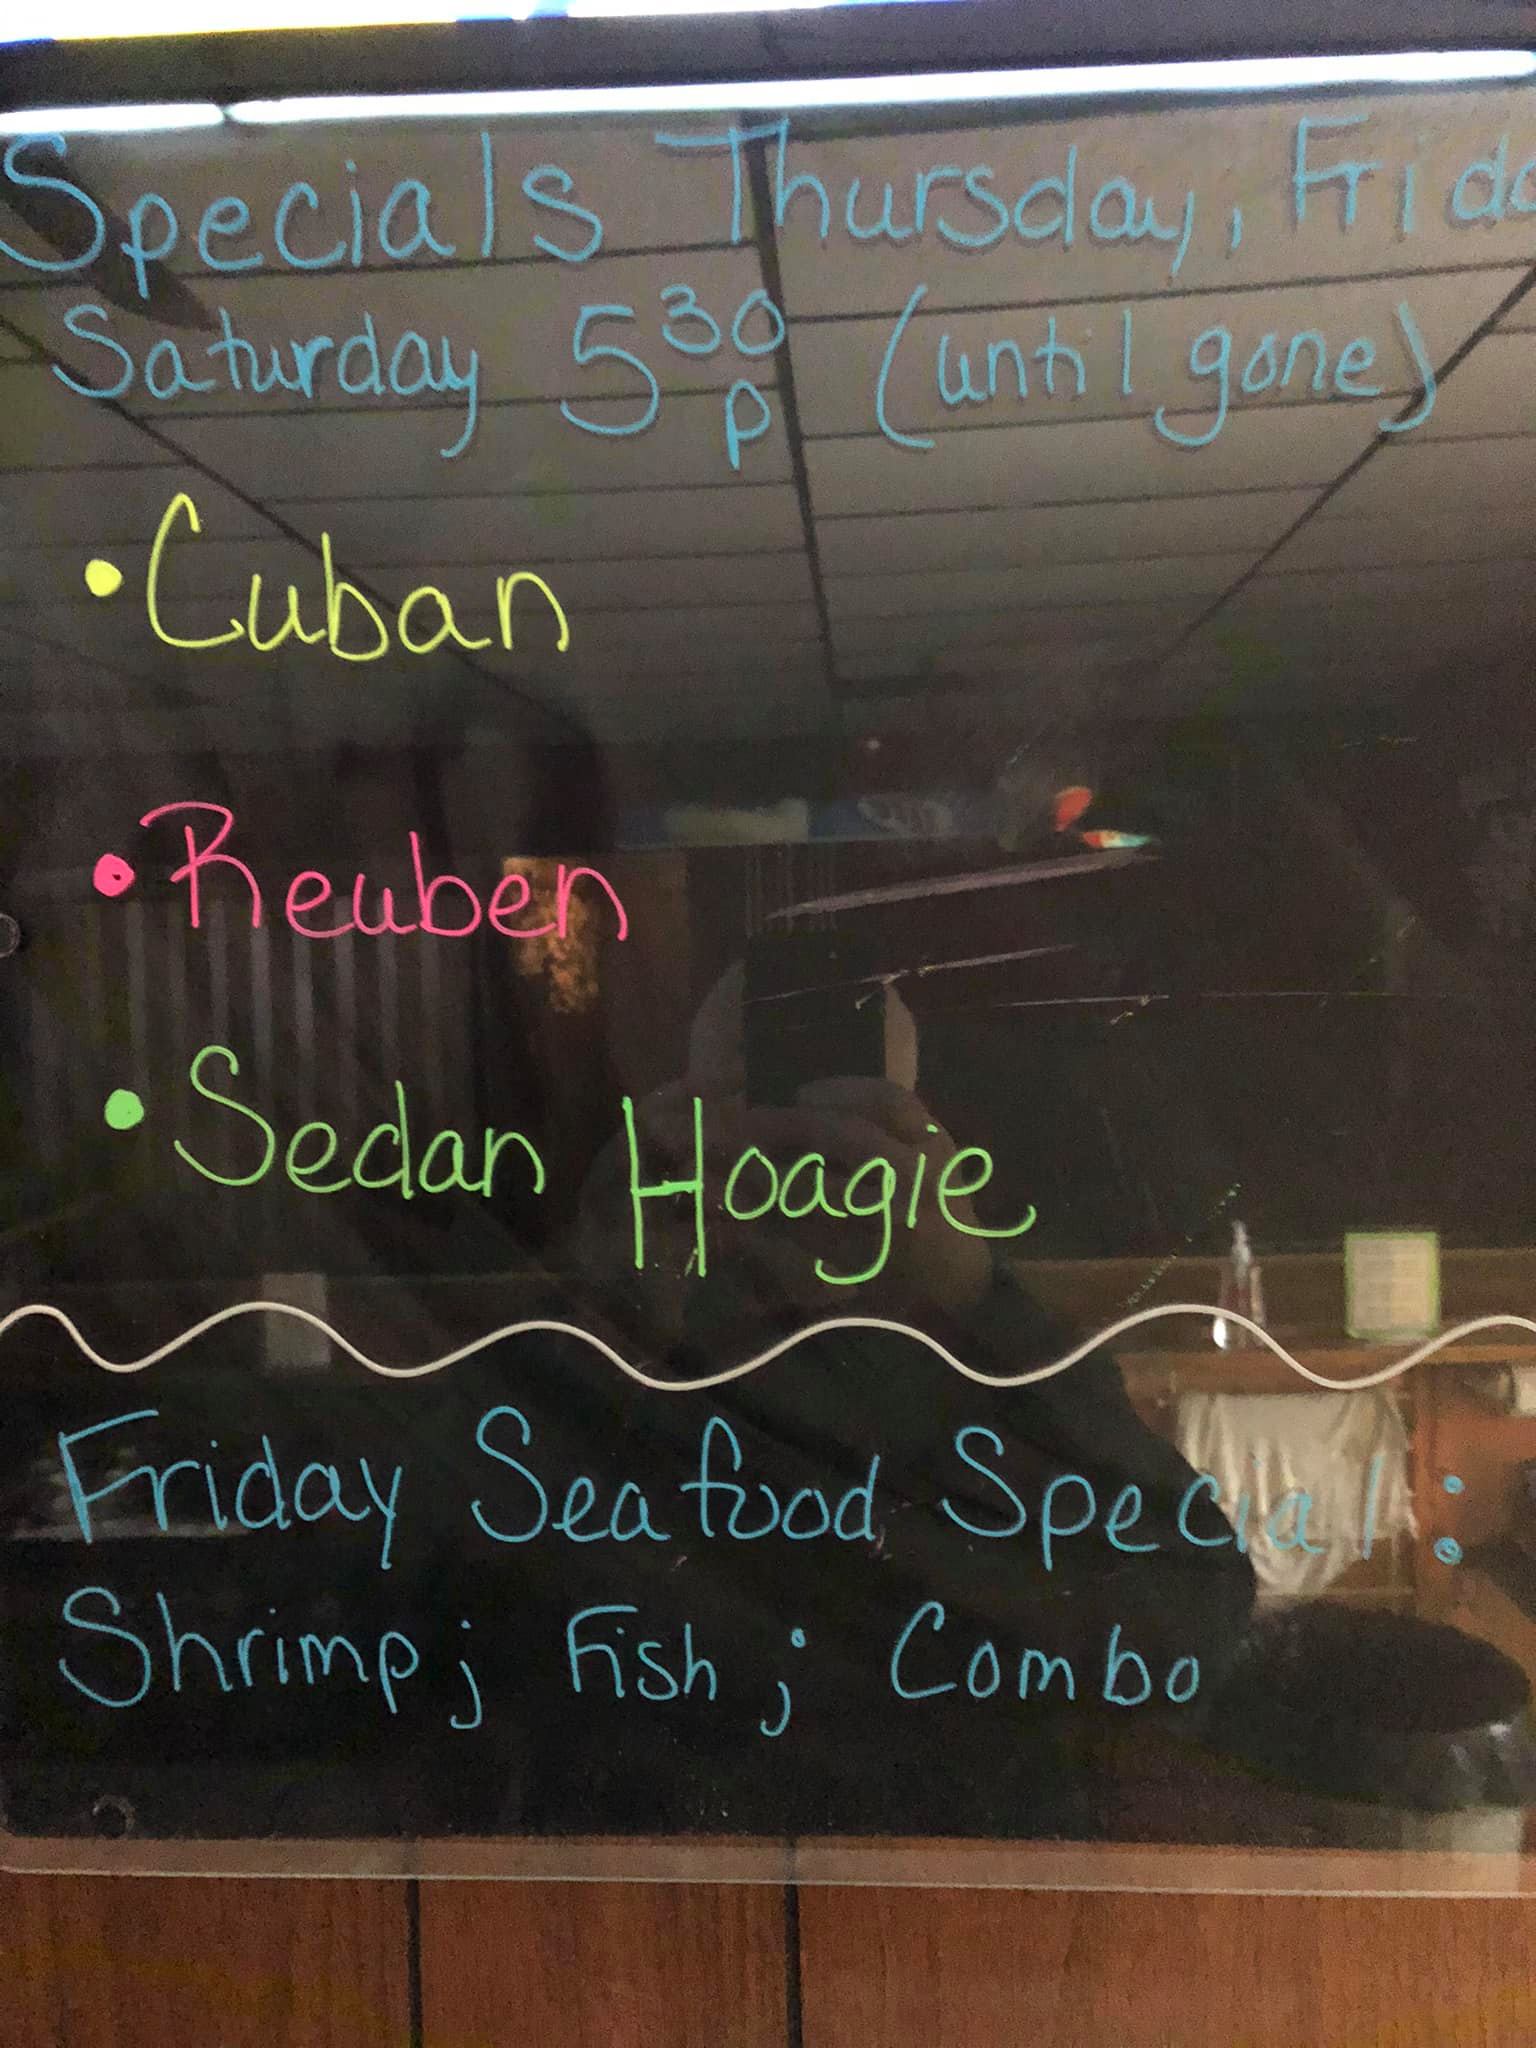 Specials Thursday, Frida
Saturday 5³⁰p (until gone)
• Cuban
• Reuben
• Sedan Hoagie
Friday Seafood Special:
Shrimp; Fish; Combo